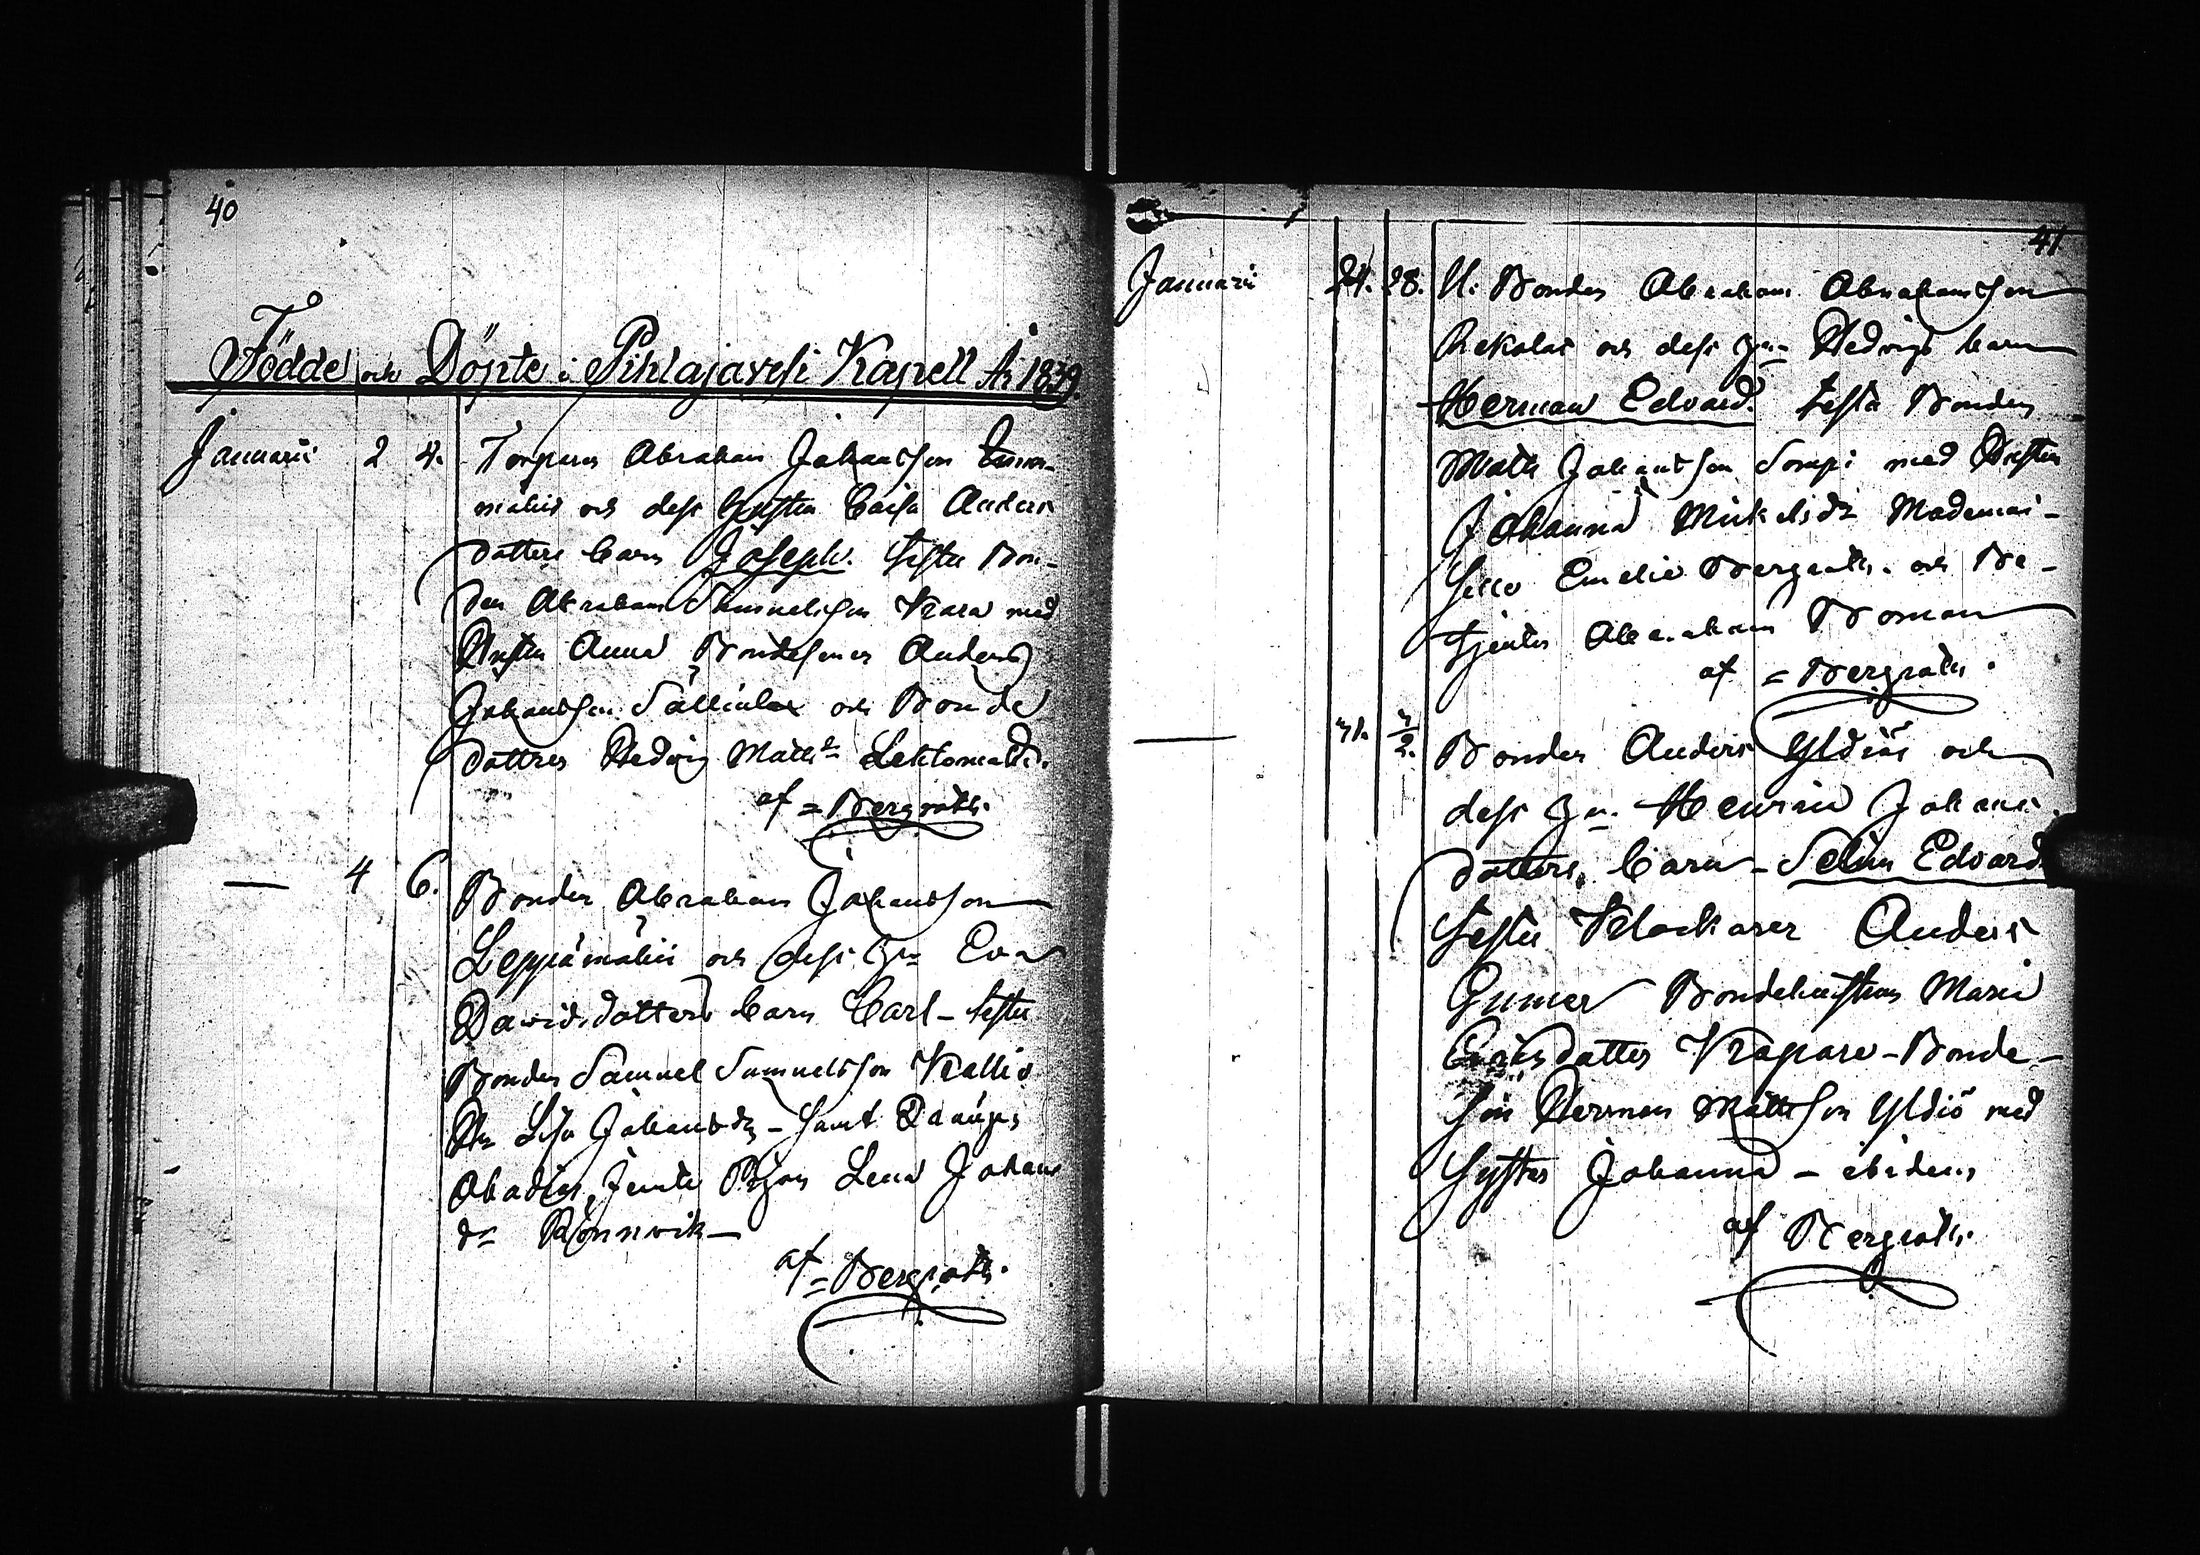 40
Födde och Döpte i Pihlajavesi Kapell År 1839.
Januarii 2 4. Torparen Abraham Johansson
mäkis och dess hustru Caisa Anders
dotters barn Joseph. testes Bon-
den Abraham Samuelsson Kara med
Hustru Anna Bondesonen Anders
Johansson och Bonde
dottren Hedvig Matts dr Lehtomäki.
af = Bergroth.
— 4 6. Bonden Abraham Johansson
Leppämäki och dess Hu Eva
Davidsdotters barn Carl – testes
Bonden Samuel Samuelsson Kallio
Hu Lisa Johansdr – samt Drängen
Abadias jemte Pigan Lena Johans
dr Rönnvik –
af = Bergroth.
41
Januarii 24. 28. U. Bonden Abraham Abrahamsson
Rekolas och dess Hu Hedvigs barn
Herman Edvard. testes Bonden
Matts Johansson Sompi med Hustru
Johanna Mickelsdr Mademoi-
selle Emelie Bergroth. och Be-
tjenten Abraham Boman
af = Bergroth.
— 31. 3/2. Bonden Anders Yldiös och
dess Hu. Henrica Johans
dotters, barn – Selim Edvard
testes Klockaren Anders
Gumer Bondehustrun Maria
Eriksdotter Krapare – Bonde-
son Herman Mattsson Yldiö med
Syster Johanna – ibidem
af Bergroth.